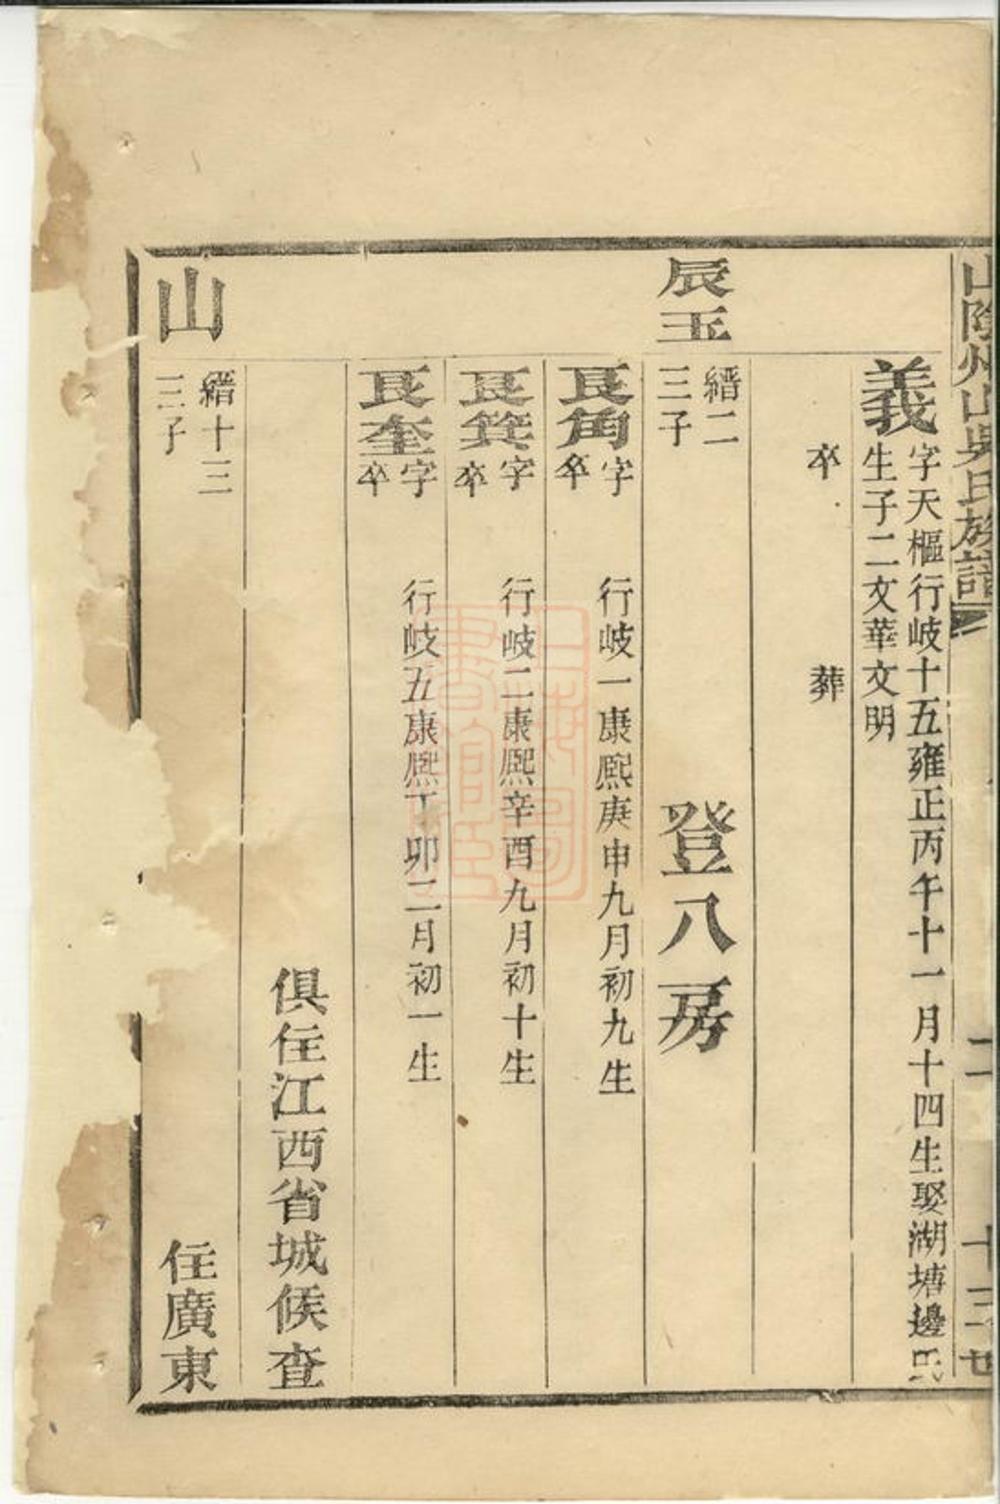 山陰州山吳氏族譜
二
十三世
義
字天樞行岐十五雍正丙午十一月十四生娶湖塘邊氏
生子二文華文明
卒 葬
辰玉
縉二
三子
登八房
良角
字 行岐一康熙庚申九月初九生
卒
良箕
字 行岐二康熙辛酉九月初十生
卒
良奎
字 行岐五康熙丁卯二月初一生
卒
俱住江西省城候查
山
縉十三
三子
住廣東